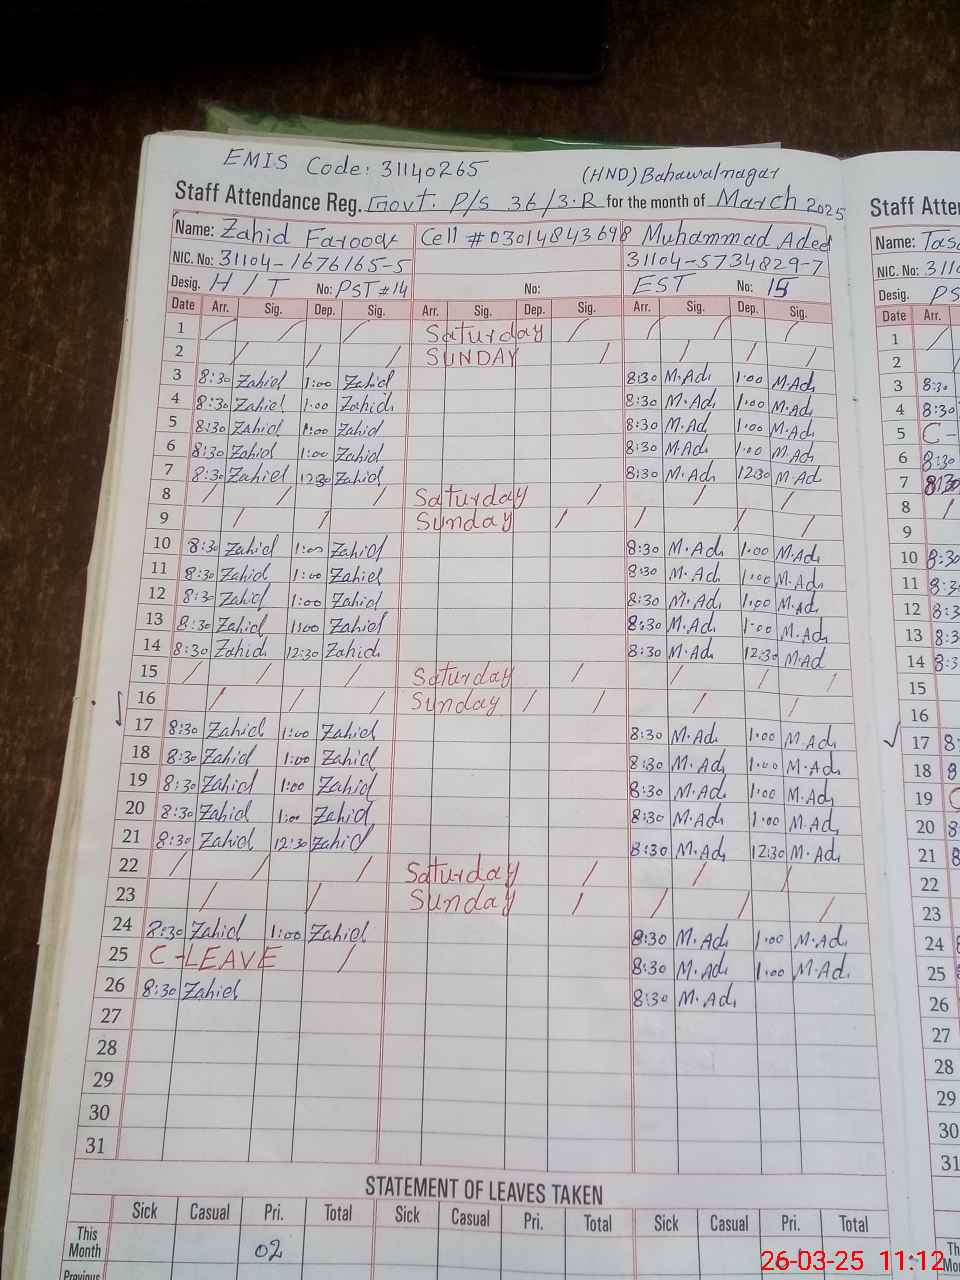 EMIS Code: 31140265 (HND) Bahawalnagar
Staff Attendance Reg. Govt: P/S 36/3.R for the month of March 2025 Staff Atte
Name: Zahid Farooq Cell # 03014843698 Muhammad Adeel Name:
NIC. No: 31104-1676165-5 31104-5734829-7 NIC. No: 3110
Desig. H/T No: PST #14 No: EST No: 15 Desig. PS
Date Arr. Sig. Dep. Sig. Arr. Sig. Dep. Sig. Arr. Sig. Dep. Sig. Date Arr.
1 / / / Saturday / / / / 1 /
2 / / / SUNDAY / / / / 2 /
3 8:30 Zahid 1:00 Zahid 8:30 M.Ad 1:00 M.Ad 3 8:30
4 8:30 Zahid 1:00 Zahid 8:30 M.Ad 1:00 M.Ad 4 8:30
5 8:30 Zahid 1:00 Zahid 8:30 M.Ad 1:00 M.Ad 5 C-
6 8:30 Zahid 1:00 Zahid 8:30 M.Ad 1:00 M.Ad 6 8:30
7 8:30 Zahid 12:30 Zahid 8:30 M.Ad 12:30 M.Ad 7 8:30
8 / / / Saturday / / / 8 /
9 / / Sunday / / / / 9
10 8:30 Zahid 1:00 Zahid 8:30 M.Ad 1:00 M.Ad 10 8:30
11 8:30 Zahid 1:00 Zahid 8:30 M.Ad 1:00 M.Ad 11 8:3
12 8:30 Zahid 1:00 Zahid 8:30 M.Ad 1:00 M.Ad 12 8:3
13 8:30 Zahid 1:00 Zahid 8:30 M.Ad 1:00 M.Ad 13 8:3
14 8:30 Zahid 12:30 Zahid 8:30 M.Ad 12:30 M.Ad 14 8:3
15 / / / Saturday / / / / 15
16 / / / Sunday / / / / 16
17 8:30 Zahid 1:00 Zahid 8:30 M.Ad 1:00 M.Ad 17 8:
18 8:30 Zahid 1:00 Zahid 8:30 M.Ad 1:00 M.Ad 18 8
19 8:30 Zahid 1:00 Zahid 8:30 M.Ad 1:00 M.Ad 19 C
20 8:30 Zahid 1:00 Zahid 8:30 M.Ad 1:00 M.Ad 20 8
21 8:30 Zahid 12:30 Zahid 8:30 M.Ad 12:30 M.Ad 21 8
22 / / / Saturday / / / 22
23 / / Sunday / / / / 23
24 8:30 Zahid 1:00 Zahid 8:30 M.Ad 1:00 M.Ad 24 8
25 C-LEAVE / 8:30 M.Ad 1:00 M.Ad 25
26 8:30 Zahid 8:30 M.Ad 26
27 27
28 28
29 29
30 30
31 31
STATEMENT OF LEAVES TAKEN
Sick Casual Pri. Total Sick Casual Pri. Total Sick Casual Pri. Total
This Month 02 Th Mo
Previous
26-03-25 11:12